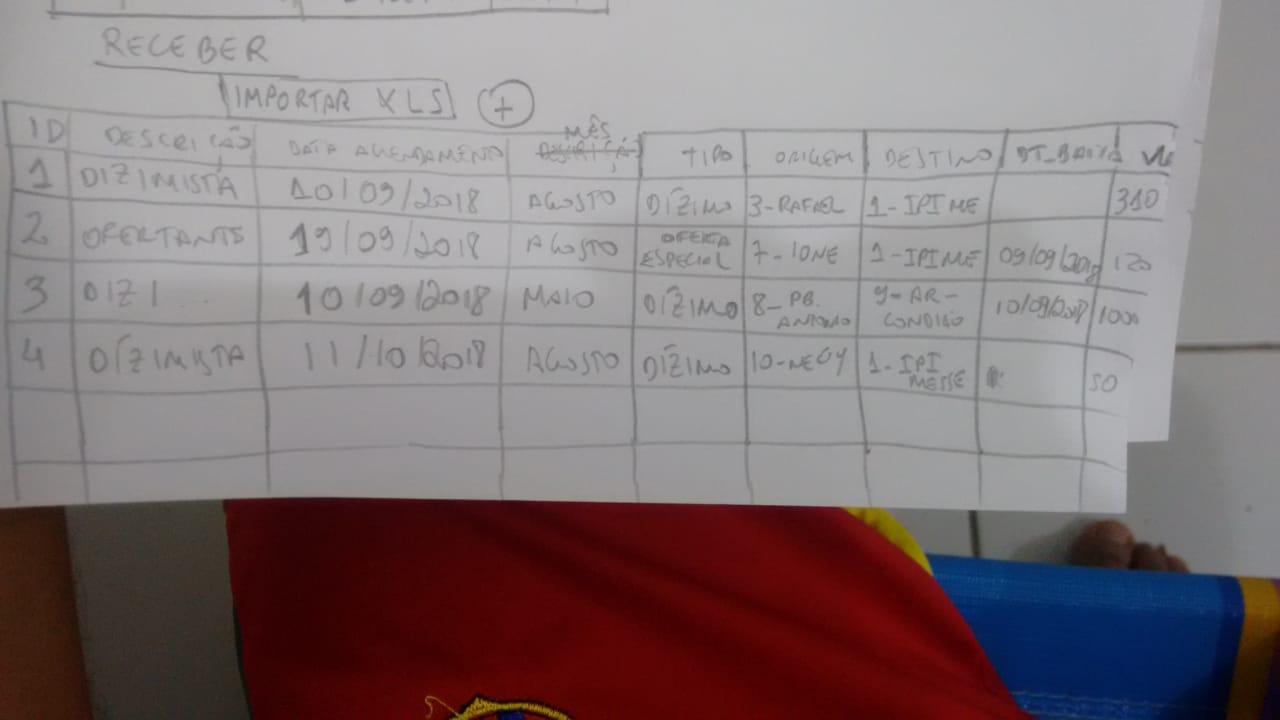 RECEBER
IMPORTAR XLS +
ID DESCRIÇÃO DATA AGENDAMENTO MÊS TIPO ORIGEM DESTINO DT_BAIXA
1 DIZIMISTA 10/09/2018 AGOSTO DÍZIMO 3-RAFAEL 1-IPIME 310
2 OFERTANTE 19/09/2018 AGOSTO OFERTA ESPECIAL 7-IONE 1-IPIME 09/09/2018 120
3 DIZI... 10/09/2018 MAIO DÍZIMO 8-PB. ANTONIO 9-AR-CONDIÇÃO 10/09/2018 1000
4 DÍZIMISTA 11/10/2018 AGOSTO DÍZIMO 10-NEGY 1-IPI MESSE 50